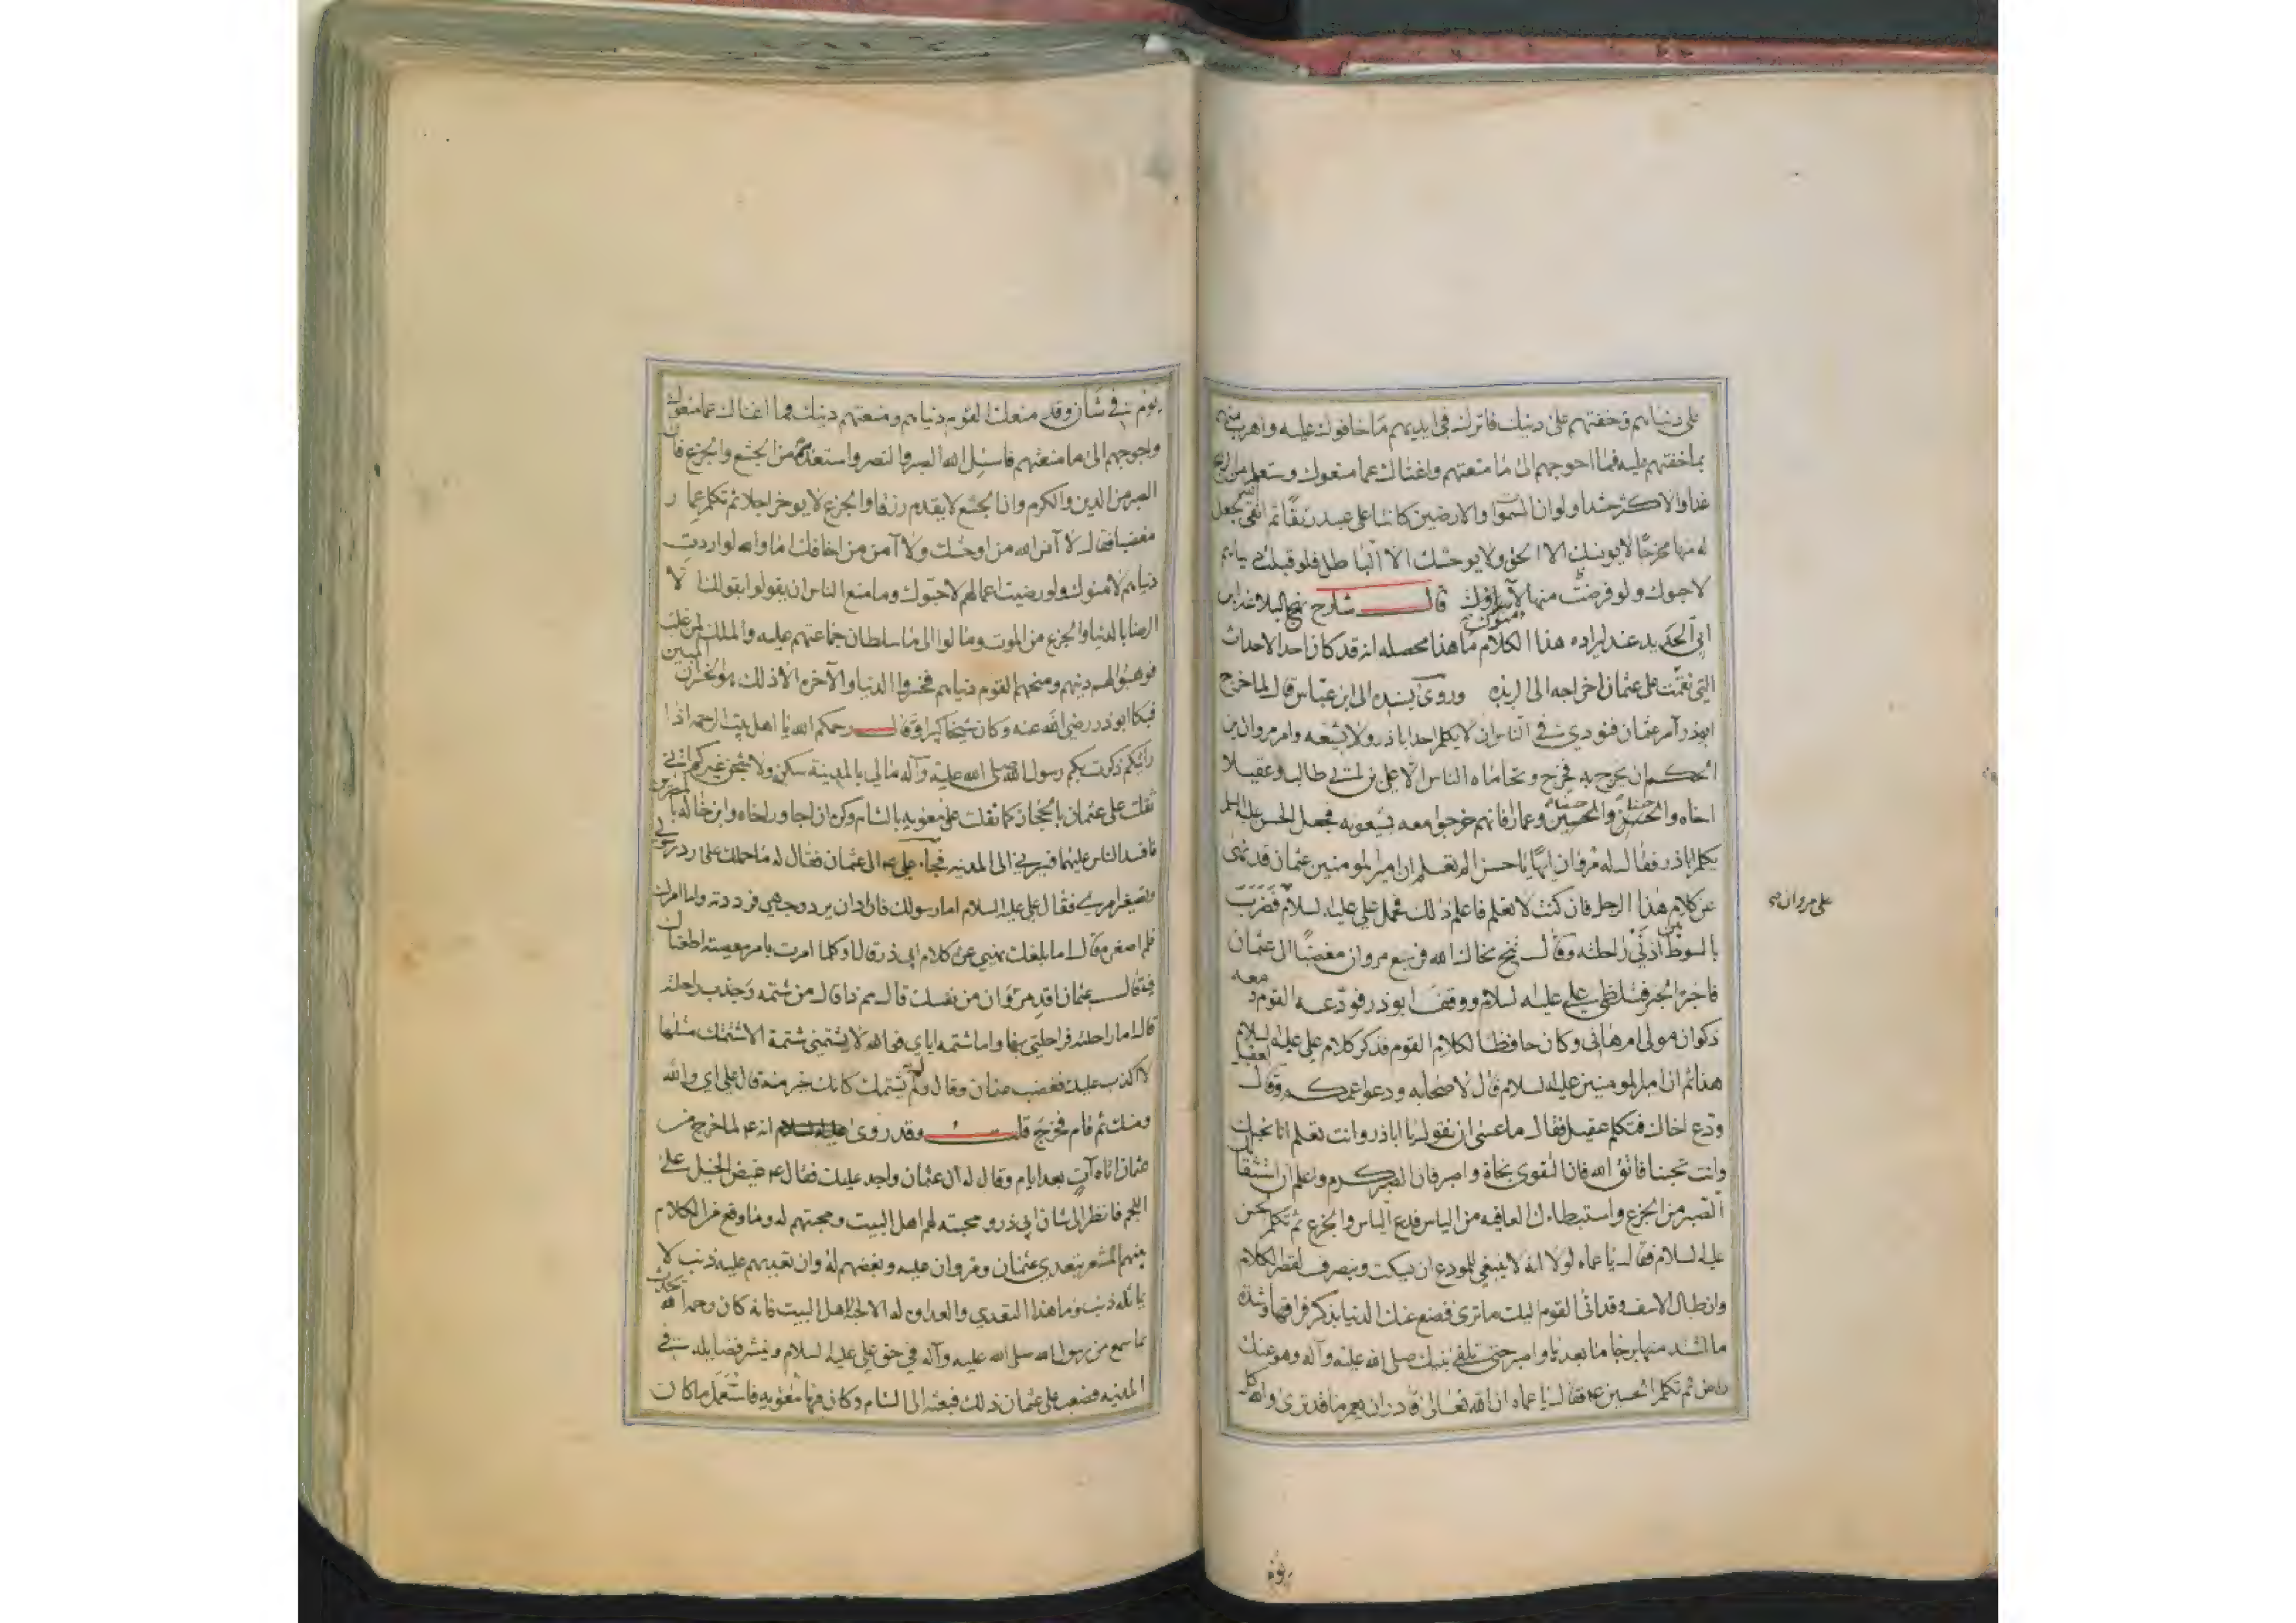 على دنياهم وخفتهم على دينك فاترك فى ايديهم ما خافوك عليه واهرب منهم
بما خفتهم عليه فما احوجهم الى ما منعتهم واغناك عما منعوك وستعلم من الرابح
غدا والاكثر حسدا ولو ان السموات والارضين كانتا على عبد رتقا ثم اتقى الله لجعل
له منها مخرجا لا يونسك الا الحق ولا يوحشك الا الباطل فلو قبلت دنياهم
لاحبوك ولو قرضت منها لآمنوك قال شارح نهج البلاغه ابن
ابى الحديد عند ايراده هذا الكلام ما هذا محصله انه قد كان احد الاحداث
التى نقمت على عثمان اخراجه الى الربذه وروى بسنده الى ابن عباس قال لما اخرج
ابوذر امر عثمان فنودي في الناس ان لا يكلم احد اباذر ولا يشيعه وامر مروان بن
الحكم ان يخرج به فخرج وتحاماه الناس الا على بن ابي طالب وعقيلا
اخاه والحسن والحسين وعمار فانهم خرجوا معه يشيعونه فجعل الحسن عليه السلم
يكلم اباذر فقال له مروان ايها يا حسن الم تعلم ان امير المومنين عثمان قد نهى
عن كلام هذا الرجل فان كنت لا تعلم فاعلم ذلك فحمل علي عليه السلام فضرب
على مروان
بالسوط بين اذني راحلته وقال تنح نحاك الله فرجع مروان مغضبا الى عثمان
فاخبره الخبر فتلظى على علي عليه السلام ووقف ابوذر فودعه القوم ومعه
ذكوان مولى ام هانى وكان حافظا لكلام القوم فذكر كلام علي عليه السلام
هذا ثم ان امير المومنين عليه السلام قال لاصحابه ودعوا عمكم وقال لعقيل
ودع اخاك فتكلم عقيل فقال ما عسى ان نقول يا اباذر وانت تعلم انا نحبك
وانت تحبنا فاتق الله فان التقوى نجاة واصبر فان الصبر كرم واعلم ان استثقالك
الصبر من الجزع واستبطاءك العافيه من الياس فدع الياس والجزع ثم تكلم الحسن
عليه السلام فقال يا عماه لولا انه لا ينبغي للمودع ان يسكت وينصرف لقصر الكلام
وان طال الاسف وقد اتى القوم اليك ما ترى فضع عنك الدنيا بذكر فراقها وشدة
ما اشتد منها برجا ما بعدها واصبر حتى تلقى نبيك صلى الله عليه وآله وهو عنك
راض ثم تكلم الحسين ع فقال يا عماه ان الله تعالى قادر ان يغير ما قد ترى والله كل
يوم
يوم هو في شان وقد منعك القوم دنياهم ومنعتهم دينك فما اغناك عما منعوك
واحوجهم الى ما منعتهم فاسئل الله الصبر والنصر واستعذ به من الجشع والجزع فان
الصبر من الدين والكرم وان الجشع لا يقدم رزقا والجزع لا يوخر اجلا ثم تكلم عمار
مغضبا فقال لا آنس الله من اوحشك ولا آمن من اخافك اما والله لو اردت
دنياهم لامنوك ولو رضيت اعمالهم لاحبوك وما منع الناس ان يقولوا بقولك الا
الرضا بالدنيا والجزع من الموت ومالوا الى ما سلطان جماعتهم عليه والملك لمن غلب
فوهبوا لهم دينهم ومنحهم القوم دنياهم فخسروا الدنيا والآخره الا ذلك هو الخسران المبين
فبكا ابوذر رضى الله عنه وكان شيخا كبيرا وقال رحمكم الله يا اهل بيت الرحمه اذا
رايتكم ذكرت بكم رسول الله صلى الله عليه وآله مالي بالمدينة سكن ولا شجن غيركم اني
ثقلت على عثمان بالحجاز كما ثقلت على معويه بالشام وكره ان اجاور اخاه وابن خاله بالمصرين
فافسد الناس عليهما فسيرني الى المدينه فجاء علي ع الى عثمان فقال له ما حملك على رد رسولي
وتصغير امري فقال علي عليه السلام اما رسولك فاراد ان يرد وجهي فرددته واما امرك
فلم اصغره قال اما بلغك نهيي عن كلام ابي ذر قال او كلما امرت بامر معصيته اطعناك
فقال عثمان اقد مروان من نفسك قال مم ذا قال من شتمه وجذب راحلته
قال اما راحلته فراحلتي بها واما شتمه اياي فوالله لا يشتمني شتمة الا شتمتك مثلها
لا اكذب عليك فغضب عثمان وقال ولم لا يشتمك كانك خير منه قال على اي والله
ومنك ثم قام فخرج قلت وقد روى انه ع لما خرج من
عثمان اتاه آت بعد ايام وقال له ان عثمان واجد عليك فقال ع غيض الخيل على
اللجم فانظر الى شان ابي ذر ومحبته لهم اهل البيت ومحبتهم له وما وقع من الكلام
بينهم المشعر بتعدي عثمان ومروان عليه وبغضهم له وان تعديهم عليه ذنب لا
يماثله ذنب وما هذا التعدي والعداوه له الا لاجل اهل البيت فانه كان رحمه الله يتحدث
بما سمع من رسول الله صلى الله عليه وآله في حق علي عليه السلام وينشر فضايله في
المدينه فصعب على عثمان ذلك فبعثه الى الشام وكان فيها معويه فاستعمل ما كان